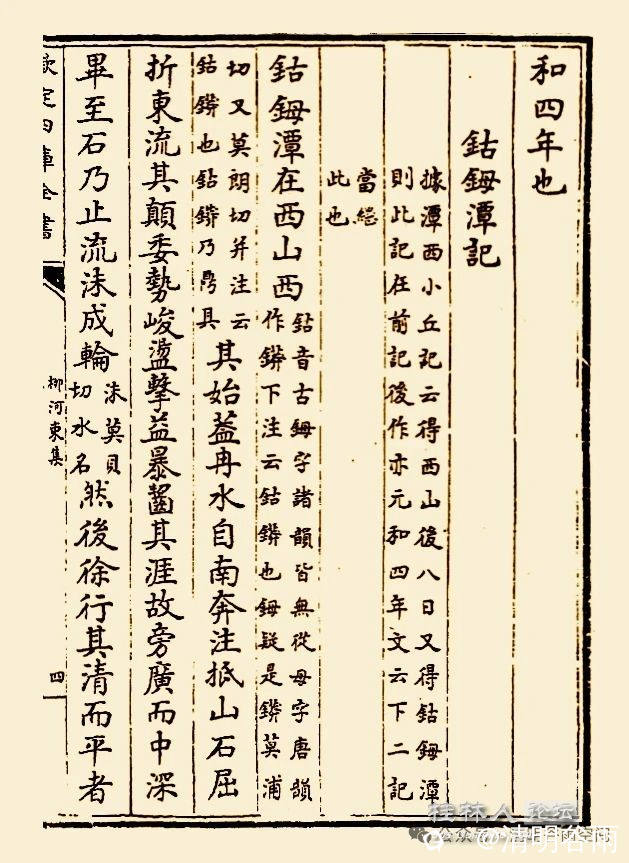 和四年也
鈷鉧潭記
據潭西小丘記云得西山後八日又得鈷鉧潭
則此記在前記後作亦元和四年文云下二記
當繼
此也
鈷鉧潭在西山西
鈷音古鉧字諸韻皆無從母字唐韻
作䥈下注云鈷䥈也鉧疑是䥈莫浦
切又莫朗切并注云
鈷䥈也鈷䥈乃鼎具
其始蓋冉水自南奔注抵山石屈
折東流其顛委勢峻盪擊益暴齧其涯故旁廣而中深
畢至石乃止流沫成輪
沫莫貝
切水名
然後徐行其清而平者
欽定四庫全書
柳河東集
四
桂林人论坛
公众号
@清明谷雨